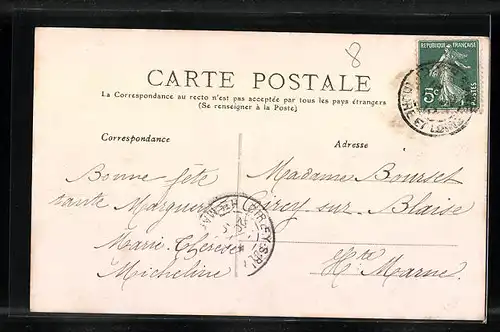 8
REPUBLIQUE FRANÇAISE
5c
POSTES
CARTE POSTALE
La Correspondance au recto n'est pas acceptée par tous les pays étrangers
(Se renseigner à la Poste)
Correspondance
Adresse
Bonne fête
tante Marguerite
Marie Thérèse
Micheline
Madame Bourset
Cirey sur Blaise
Hte Marne
CIREY-S-BL